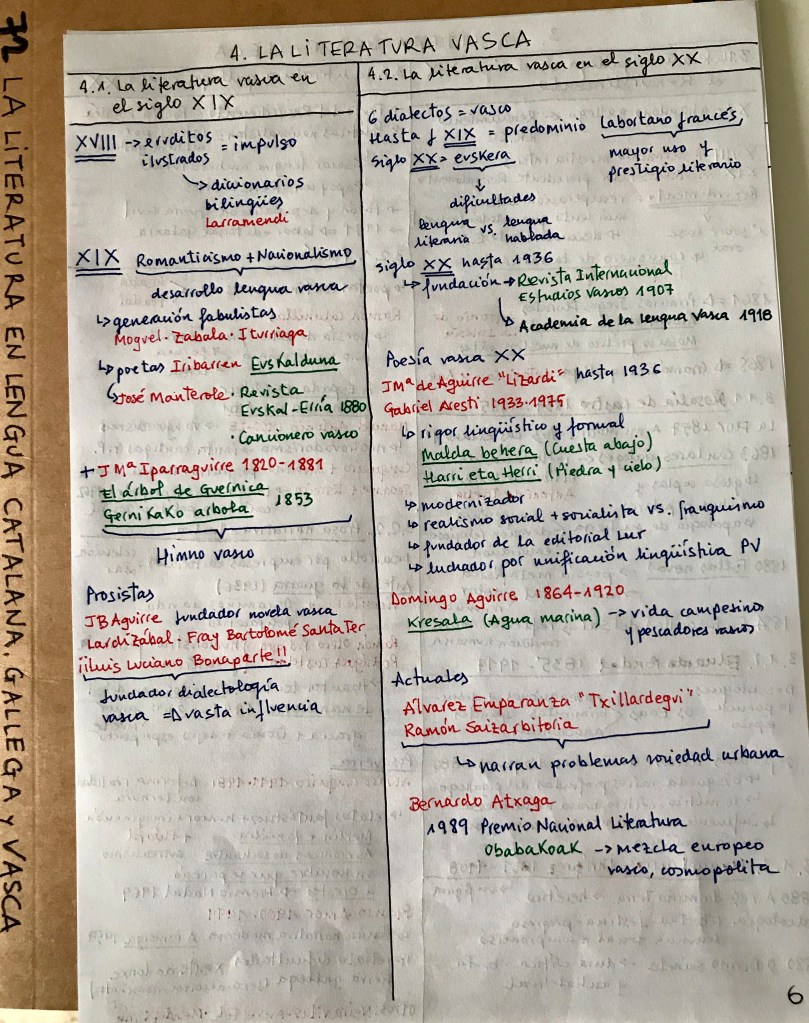 72 LA LITERATURA EN LENGUA CATALANA, GALLEGA Y VASCA
4. LA LITERATURA VASCA
4.1. La literatura vasca en
el siglo XIX
XVIII → eruditos
ilustrados = impulso
↘ diccionarios
bilingües
Larramendi
XIX Romanticismo + Nacionalismo
desarrollo lengua vasca
↳ generación fabulistas
Moguel · Zabala · Iturriaga
↳ poetas Iribarren Euskalduna
↳ José Manterole · Revista
Euskal-Erria 1880
· Cancionero vasco
+ J Mª Iparraguirre 1820-1881
El árbol de Guernica
Gernikako arbola 1853
Himno vasco
Prosistas
JB Aguirre fundador novela vasca
Lardizábal · Fray Bartolomé Santa Ter
¡¡Luis Luciano Bonaparte!!
fundador dialectología
vasca ⇒ vasta influencia
4.2. La literatura vasca en el siglo XX
6 dialectos = vasco
Hasta f XIX = predominio labortano francés,
mayor uso y
prestigio literario
siglo XX = euskera
↓
dificultades
lengua vs. lengua
literaria hablada
siglo XX hasta 1936
↳ fundación → Revista Internacional
Estudios Vascos 1907
↳ Academia de la lengua vasca 1918
Poesía vasca XX
J Mª de Aguirre "Lizardi" hasta 1936
Gabriel Aresti 1933-1975
↳ rigor lingüístico y formal
Malda behera (Cuesta abajo)
Harri eta Herri (Piedra y cielo)
↳ modernizador
↳ realismo social + socialista vs. franquismo
↳ fundador de la editorial Lur
↳ luchador por unificación lingüística PV
Domingo Aguirre 1864-1920
Kresala (Agua marina) → vida campesinos
y pescadores vascos
Actuales
Álvarez Emparanza "Txillardegui"
Ramón Saizarbitoria
↳ narran problemas sociedad urbana
Bernardo Atxaga
1989 Premio Nacional Literatura
Obabakoak → mezcla europeo
vasco, cosmopolita
6